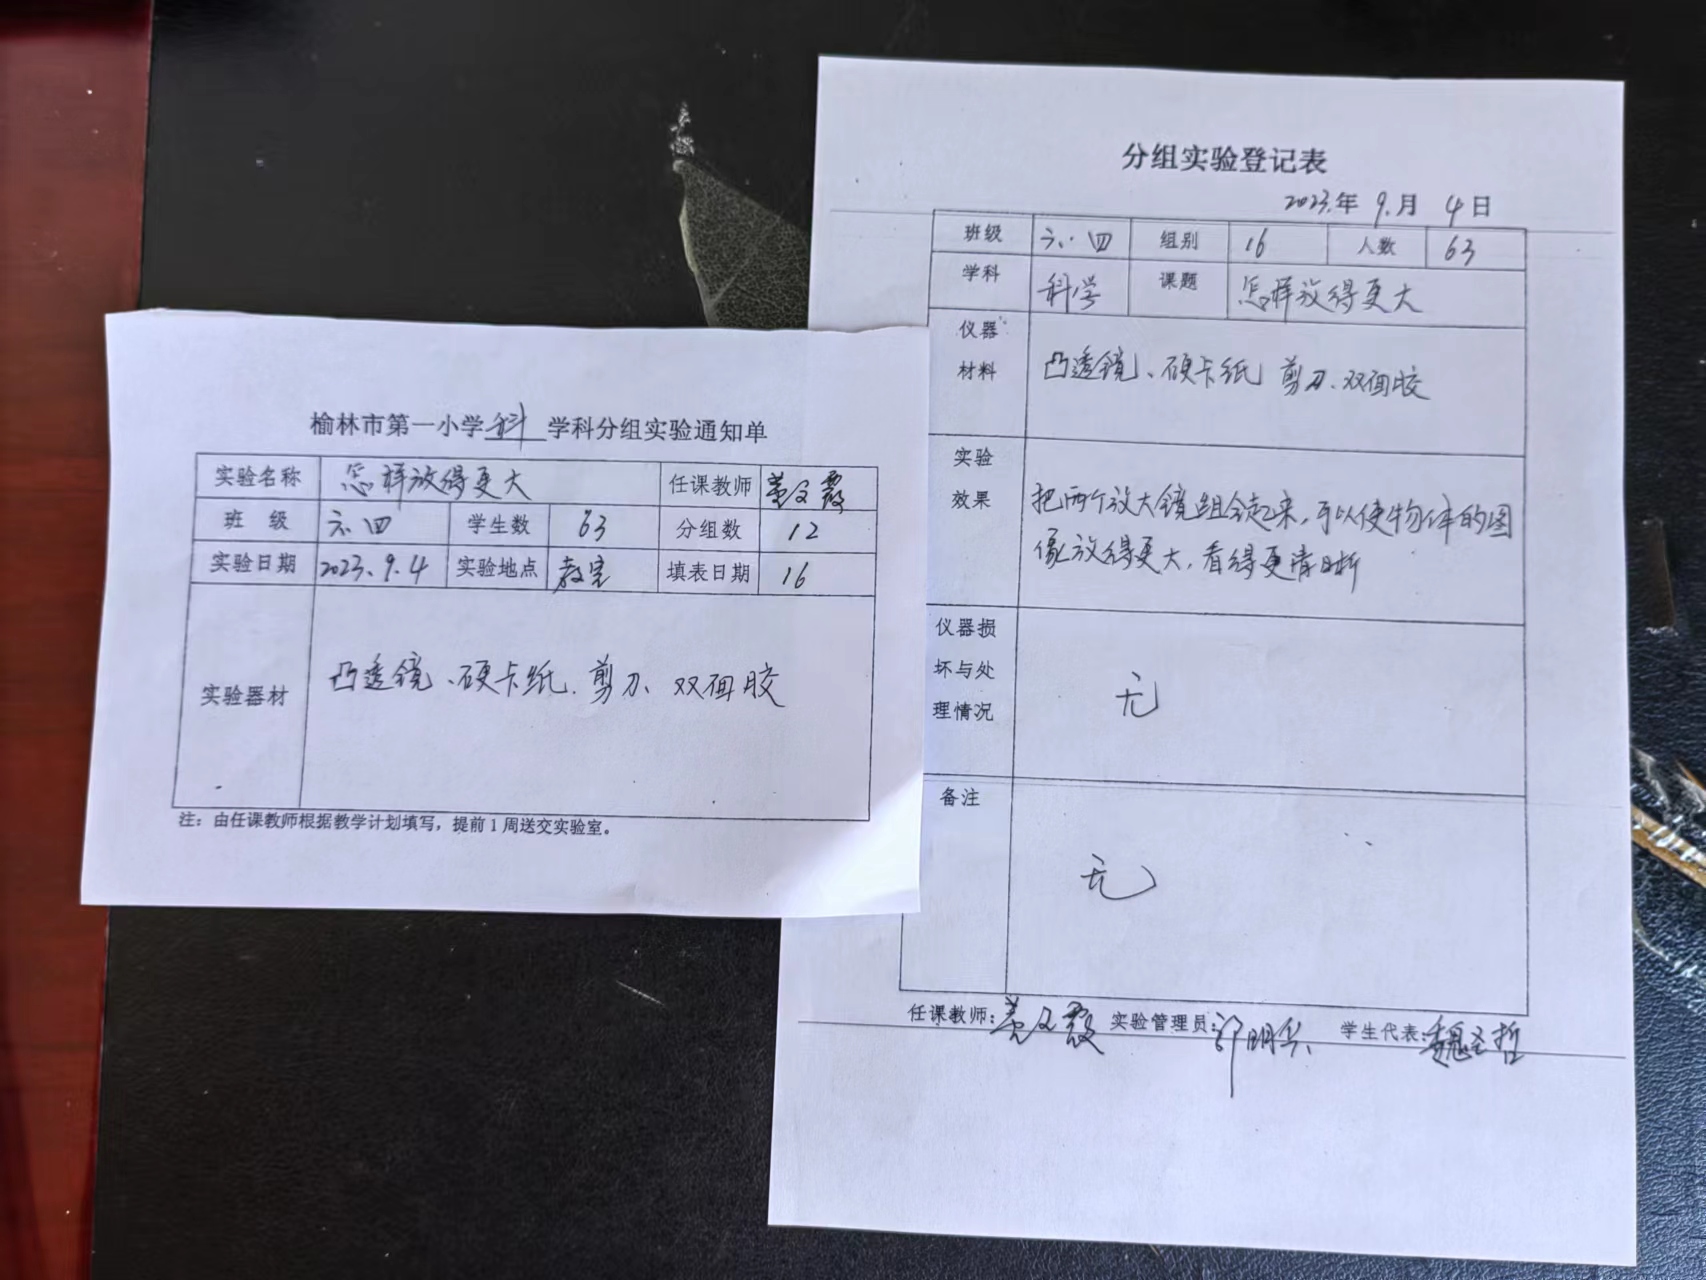 榆林市第一小学 科 学科分组实验通知单
实验名称 怎样放得更大 任课教师 姜文霞
班 级 六.四 学生数 63 分组数 12
实验日期 2023.9.4 实验地点 教室 填表日期 16
实验器材 凸透镜、硬卡纸.剪刀、双面胶
注：由任课教师根据教学计划填写，提前1周送交实验室。
分组实验登记表
2023.年 9.月 4日
班级 六.四 组别 16 人数 63
学科 科学 课题 怎样放得更大
仪器
材料
凸透镜、硬卡纸 剪刀.双面胶
实验
效果
把两个放大镜组合起来,可以使物体的图
像放得更大,看得更清晰
仪器损
坏与处
理情况
无
备注
无
任课教师:姜文霞 实验管理员: 学生代表:魏圣哲